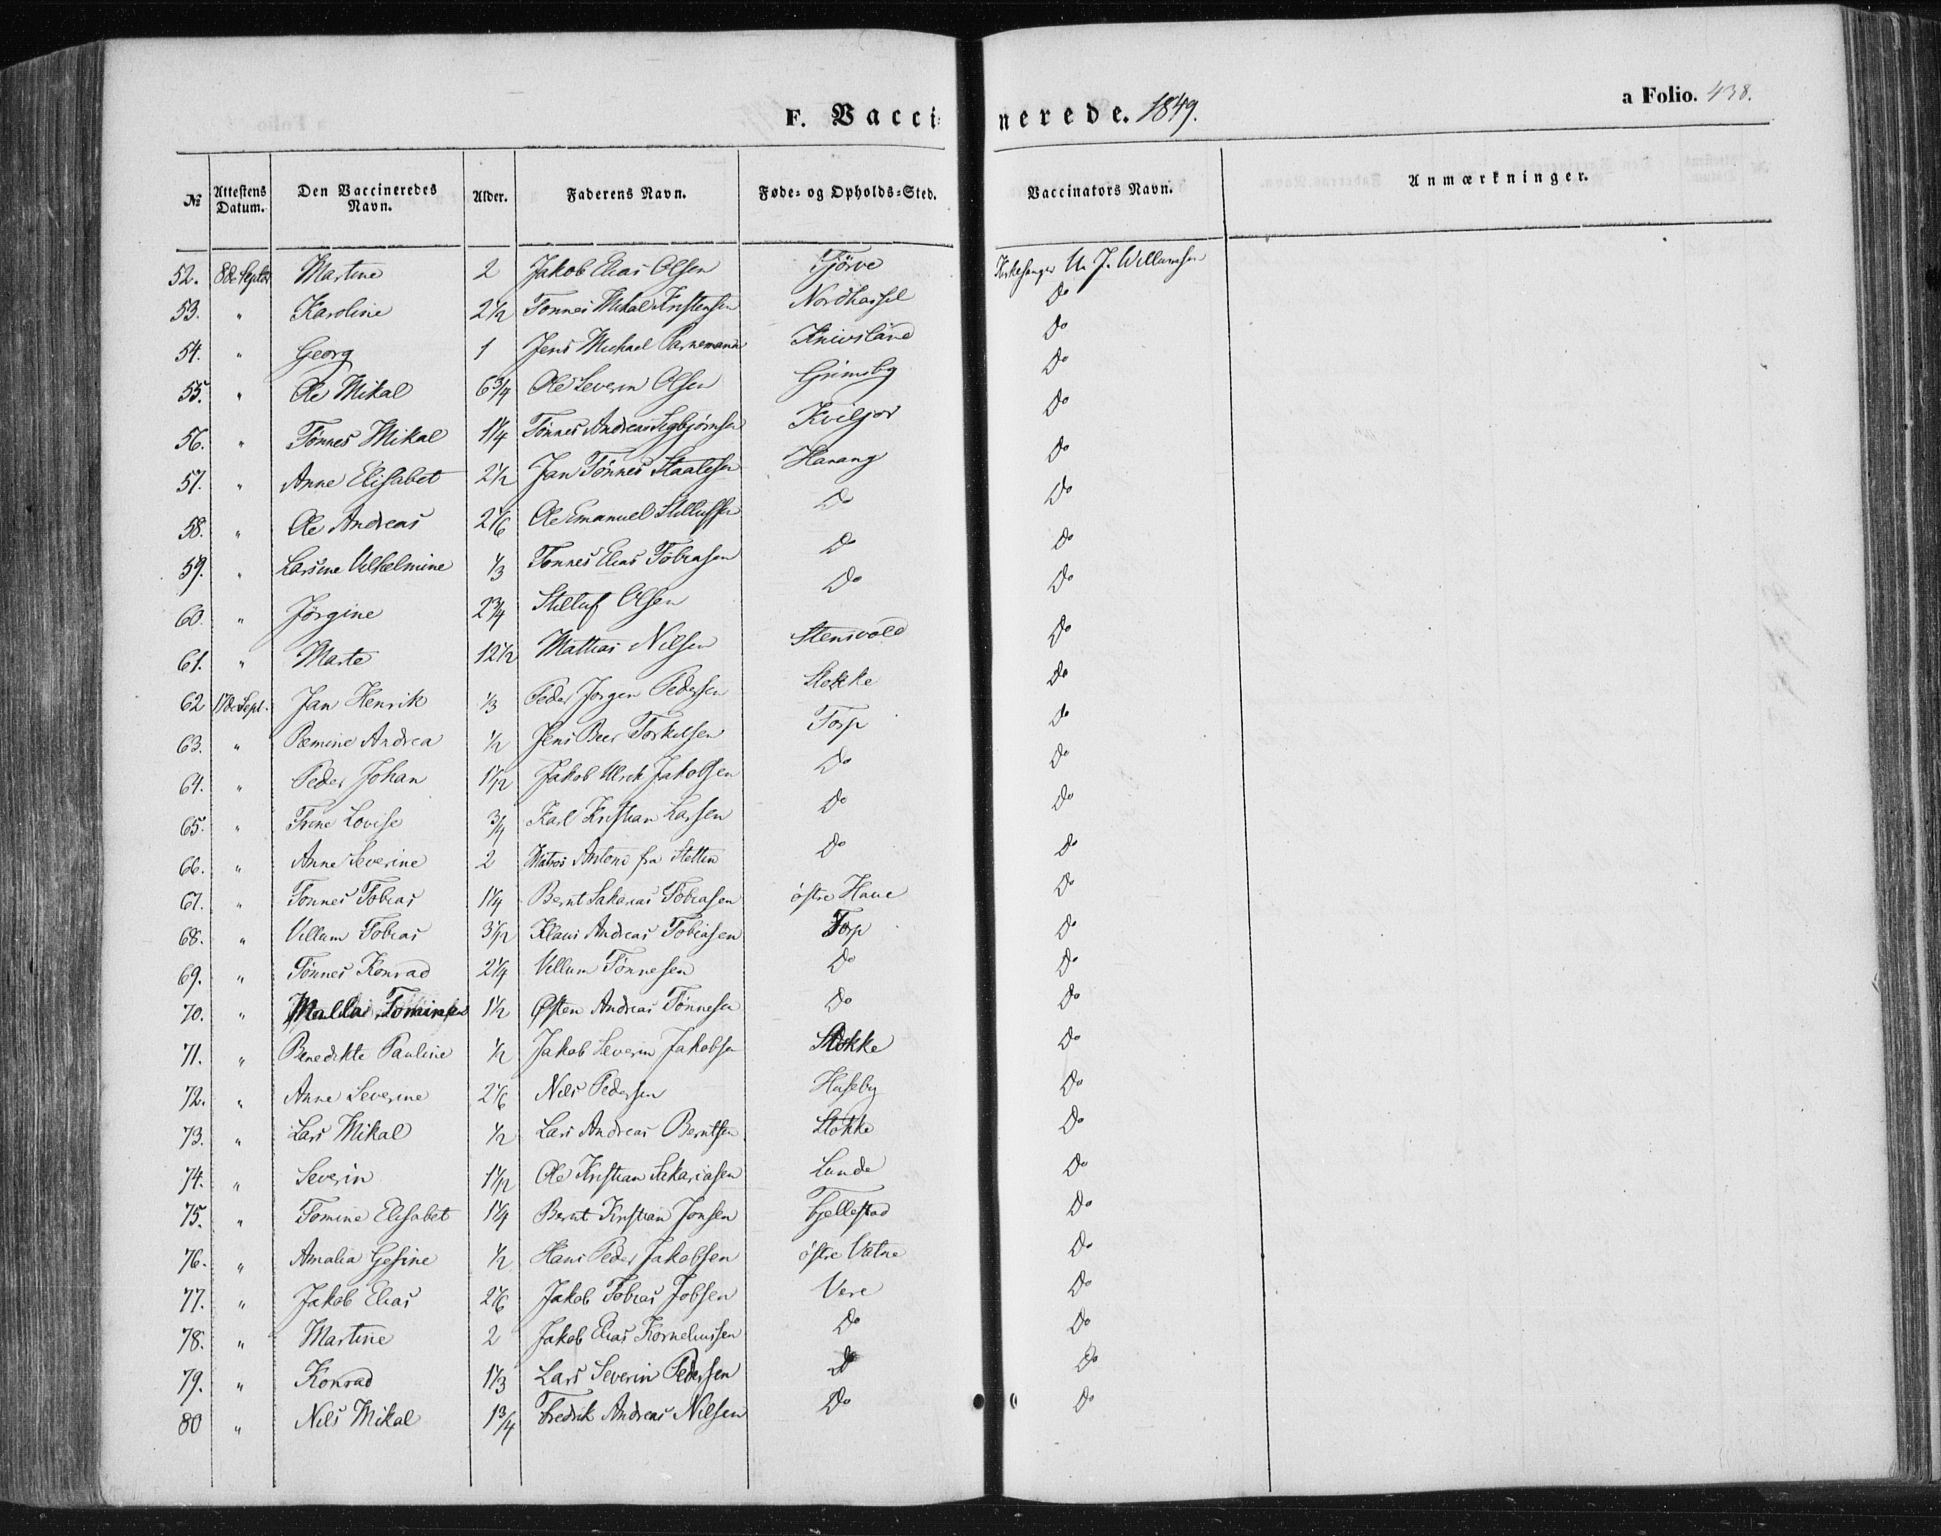 F. Vaccinerede. 1849.
a Folio. 438.
No Attestens Datum. Den Vaccineredes Navn. Alder. Faderens Navn. Føde- og Opholds-Sted. Vaccinators Navn. Anmærkninger.
52. 8de Septbr Martine 2 Jakob Elias Olsen Tjörve Kirkesanger J. Willumsen
53. " Karoline 2 1/2 Tønnes Mikal Kristensen Nordhassel Do
54. " Georg 1 Jens Michael Knivsland Do
55. " Ole Mikal 6 3/4 Ole Severin Olsen Grimsby Do
56. " Tönnes Mikal 1 1/4 Tönnes Andreas Sigbjörnsen Kviljor Do
57. " Anne Elisabet 2 1/2 Jan Tönnes Staalesen Hanang Do
58. " Ole Andreas 2 1/6 Ole Emanuel Stillufsen Do Do
59. " Larsine Vilhelmine 1/3 Tönnes Elias Tobiasen Do Do
60. " Jörgine 2 3/4 Stilluf Olsen Do Do
61. " Marte 12 1/2 Mathias Nilsen Stensvold Do
62 17de Sept. Jan Henrik 1/3 Peder Jörgen Pedersen Stokke Do
63. " Pemine Andrea 1/2 Jens Beer Torkelsen Torp Do
64. " Peder Johan 1 1/2 Jakob Ulrik Jakobsen Do Do
65. " Trine Lovise 3/4 Karl Kristian Larsen Do Do
66. " Anne Severine 2 Matros Antoni fra Stettin Do Do
67. " Tönnes Tobias 1 1/4 Bernt Sakarias Tobiasen östre Haue Do
68. " Villum Tobias 3 1/2 Klaus Andreas Tobiasen Torp Do
69. " Tönnes Konrad 2 1/4 Villum Tönnesen Do Do
70. " 1 1/2 Østen Andreas Tönnesen Do Do
71. " Benedikte Pauline 1/2 Jakob Severin Jakobsen Stokke Do
72. " Anne Severine 2 1/6 Nils Pedersen Huseby Do
73. " Lars Mikal 1/2 Lars Andreas Berntsen Stokke Do
74. " Severin 1 1/2 Ole Kristian Sakariasen Lunde Do
75. " Tomine Elisabet 1 1/4 Bernt Kristian Jonsen Fjellestad Do
76. " Amalia Gesine 1/2 Hans Peder Jakobsen östre Vatne Do
77. " Jakob Elias 2 1/6 Jakob Tobias Jobsen Vere Do
78. " Martine 2 Jakob Elias Korneliussen Do Do
79. " Konrad 1 1/3 Lars Severin Pedersen Do Do
80 " Nils Mikal 1 3/4 Fredrik Andreas Nilsen Do Do